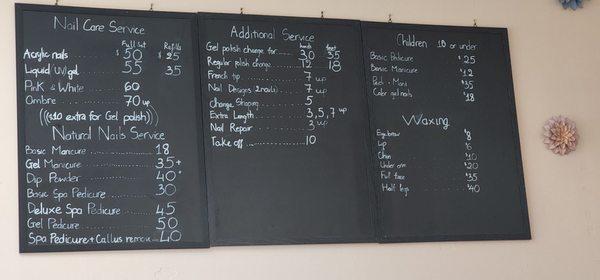 Nail Care Service
Full Set Refills
Acrylic nails $50 $25
Liquid/UV/gel 55 35
Pink & White 60
Ombre 70 up
($10 extra for Gel polish)
Natural Nails Service
Basic Manicure 18
Gel Manicure 35+
Dip Powder 40+
Basic Spa Pedicure 30
Deluxe Spa Pedicure 45
Gel Pedicure 50
Spa Pedicure + Callus remove 40
Additional Service
hands feet
Gel polish change for 30 35
Regular polish change 12 18
French tip 7 up
Nail Designs 2 nails) 7 up
Change Shaping 5
Extra Length 3, 5, 7 up
Nail Repair 3 up
Take off 10
Children 10 or under
Basic Pedicure $25
Basic Manicure $12
Pedi + Mani $35
Color gel nails $18
Waxing
Eyebrow $8
Lip $6
Chin $10
Under arm $20
Full face $35
Half legs $40